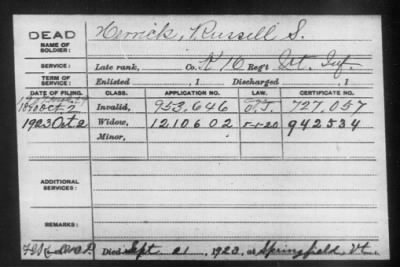 DEAD
NAME OF SOLDIER: Herrick, Russell S.
SERVICE: Late rank, Co. K 16 Reg't Vt. Inf.
TERM OF SERVICE: Enlisted , 1 Discharged , 1
DATE OF FILING. CLASS. APPLICATION NO. LAW. CERTIFICATE NO.
Oct. 2 Invalid, 953,646 727,057
1923 Oct 2 Widow, 1210602 5-1-20 942534
Minor,
ADDITIONAL SERVICES:
REMARKS:
Died Sept. 21, 1923, at Springfield, Vt.